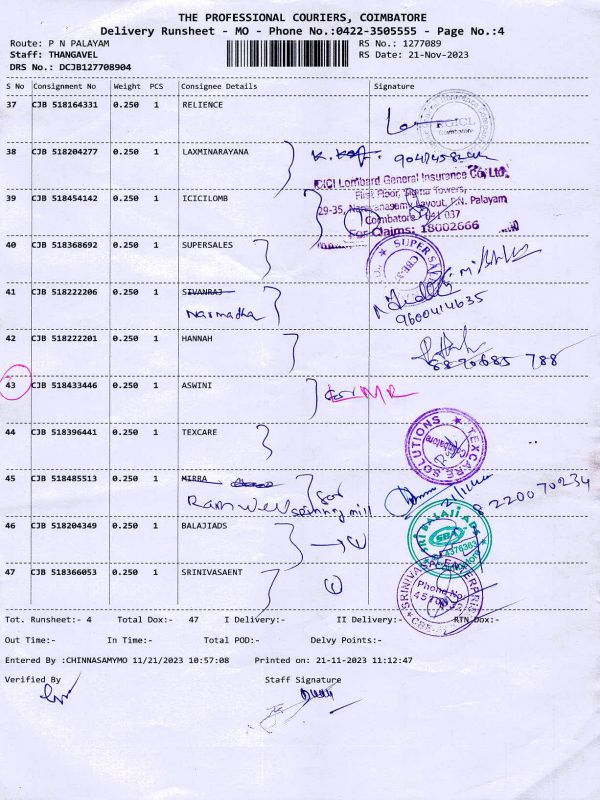 THE PROFESSIONAL COURIERS, COIMBATORE
Delivery Runsheet - MO - Phone No.:0422-3505555 - Page No.:4
Route: P N PALAYAM RS No.: 1277089
Staff: THANGAVEL RS Date: 21-Nov-2023
DRS No.: DCJB127708904
S No Consignment No Weight PCS Consignee Details Signature
37 CJB 518164331 0.250 1 RELIENCE
RGICL
Coimbatore
38 CJB 518204277 0.250 1 LAXMINARAYANA
ICICI Lombard General Insurance Co. Ltd.
First Floor, Sigma Towers,
39 CJB 518454142 0.250 1 ICICILOMB
29-35, Narayanasamy Layout, P.N. Palayam
Coimbatore - 641 037
For Claims: 18002666
40 CJB 518368692 0.250 1 SUPERSALES
SUPER SA
CBE-3
41 CJB 518222206 0.250 1 SIVANRAJ
Narmadha
9600414635
42 CJB 518222201 0.250 1 HANNAH
8890685 788
43 CJB 518433446 0.250 1 ASWINI
MR
44 CJB 518396441 0.250 1 TEXCARE
TEXCARE SOLUTIONS
Coimbatore
45 CJB 518485513 0.250 1 MIRRA
for
spinning mill
8220070234
46 CJB 518204349 0.250 1 BALAJIADS
SRI BALAJI ADS
SBA
47 CJB 518366053 0.250 1 SRINIVASAENT
SRINIVASA ENTERPRISES
Phone No.
CBE
Tot. Runsheet:- 4 Total Dox:- 47 I Delivery:- II Delivery:- RTN Dox:-
Out Time:- In Time:- Total POD:- Delvy Points:-
Entered By :CHINNASAMYMO 11/21/2023 10:57:08 Printed on: 21-11-2023 11:12:47
Verified By Staff Signature